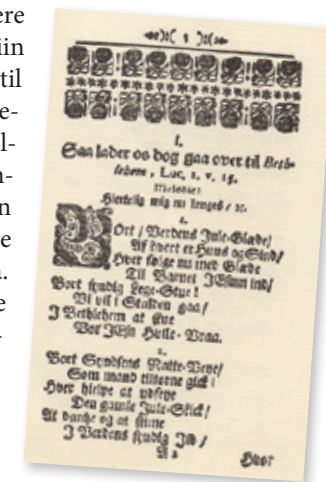 ere
iin
til
e-
l-
n-
n
re
a.
e
-
)( 1 )(
I.
Saa lader os dog gaa over til Beth-
lehem, Luc, 2. v. 15.
Melodie:
Hiertelig mig nu lenges / ꝛc.
1.
Ort / Verdens Jule-Glæde /
Af hvert er Huus og Sind /
Hver følge nu med Glæde
Til Barnet JEsum ind /
Bort syndig Lege-Stue!
Vi vil i Stalden gaa /
I Bethlehem at skue
Vor JEsu Hvile-Vraa.
2.
Bort Syndsens Natte-Veye /
Som mand tilforne gick /
Hver
Den gamle Jule-Skick /
At og at
I Verdens syndig
A 2
Hvor